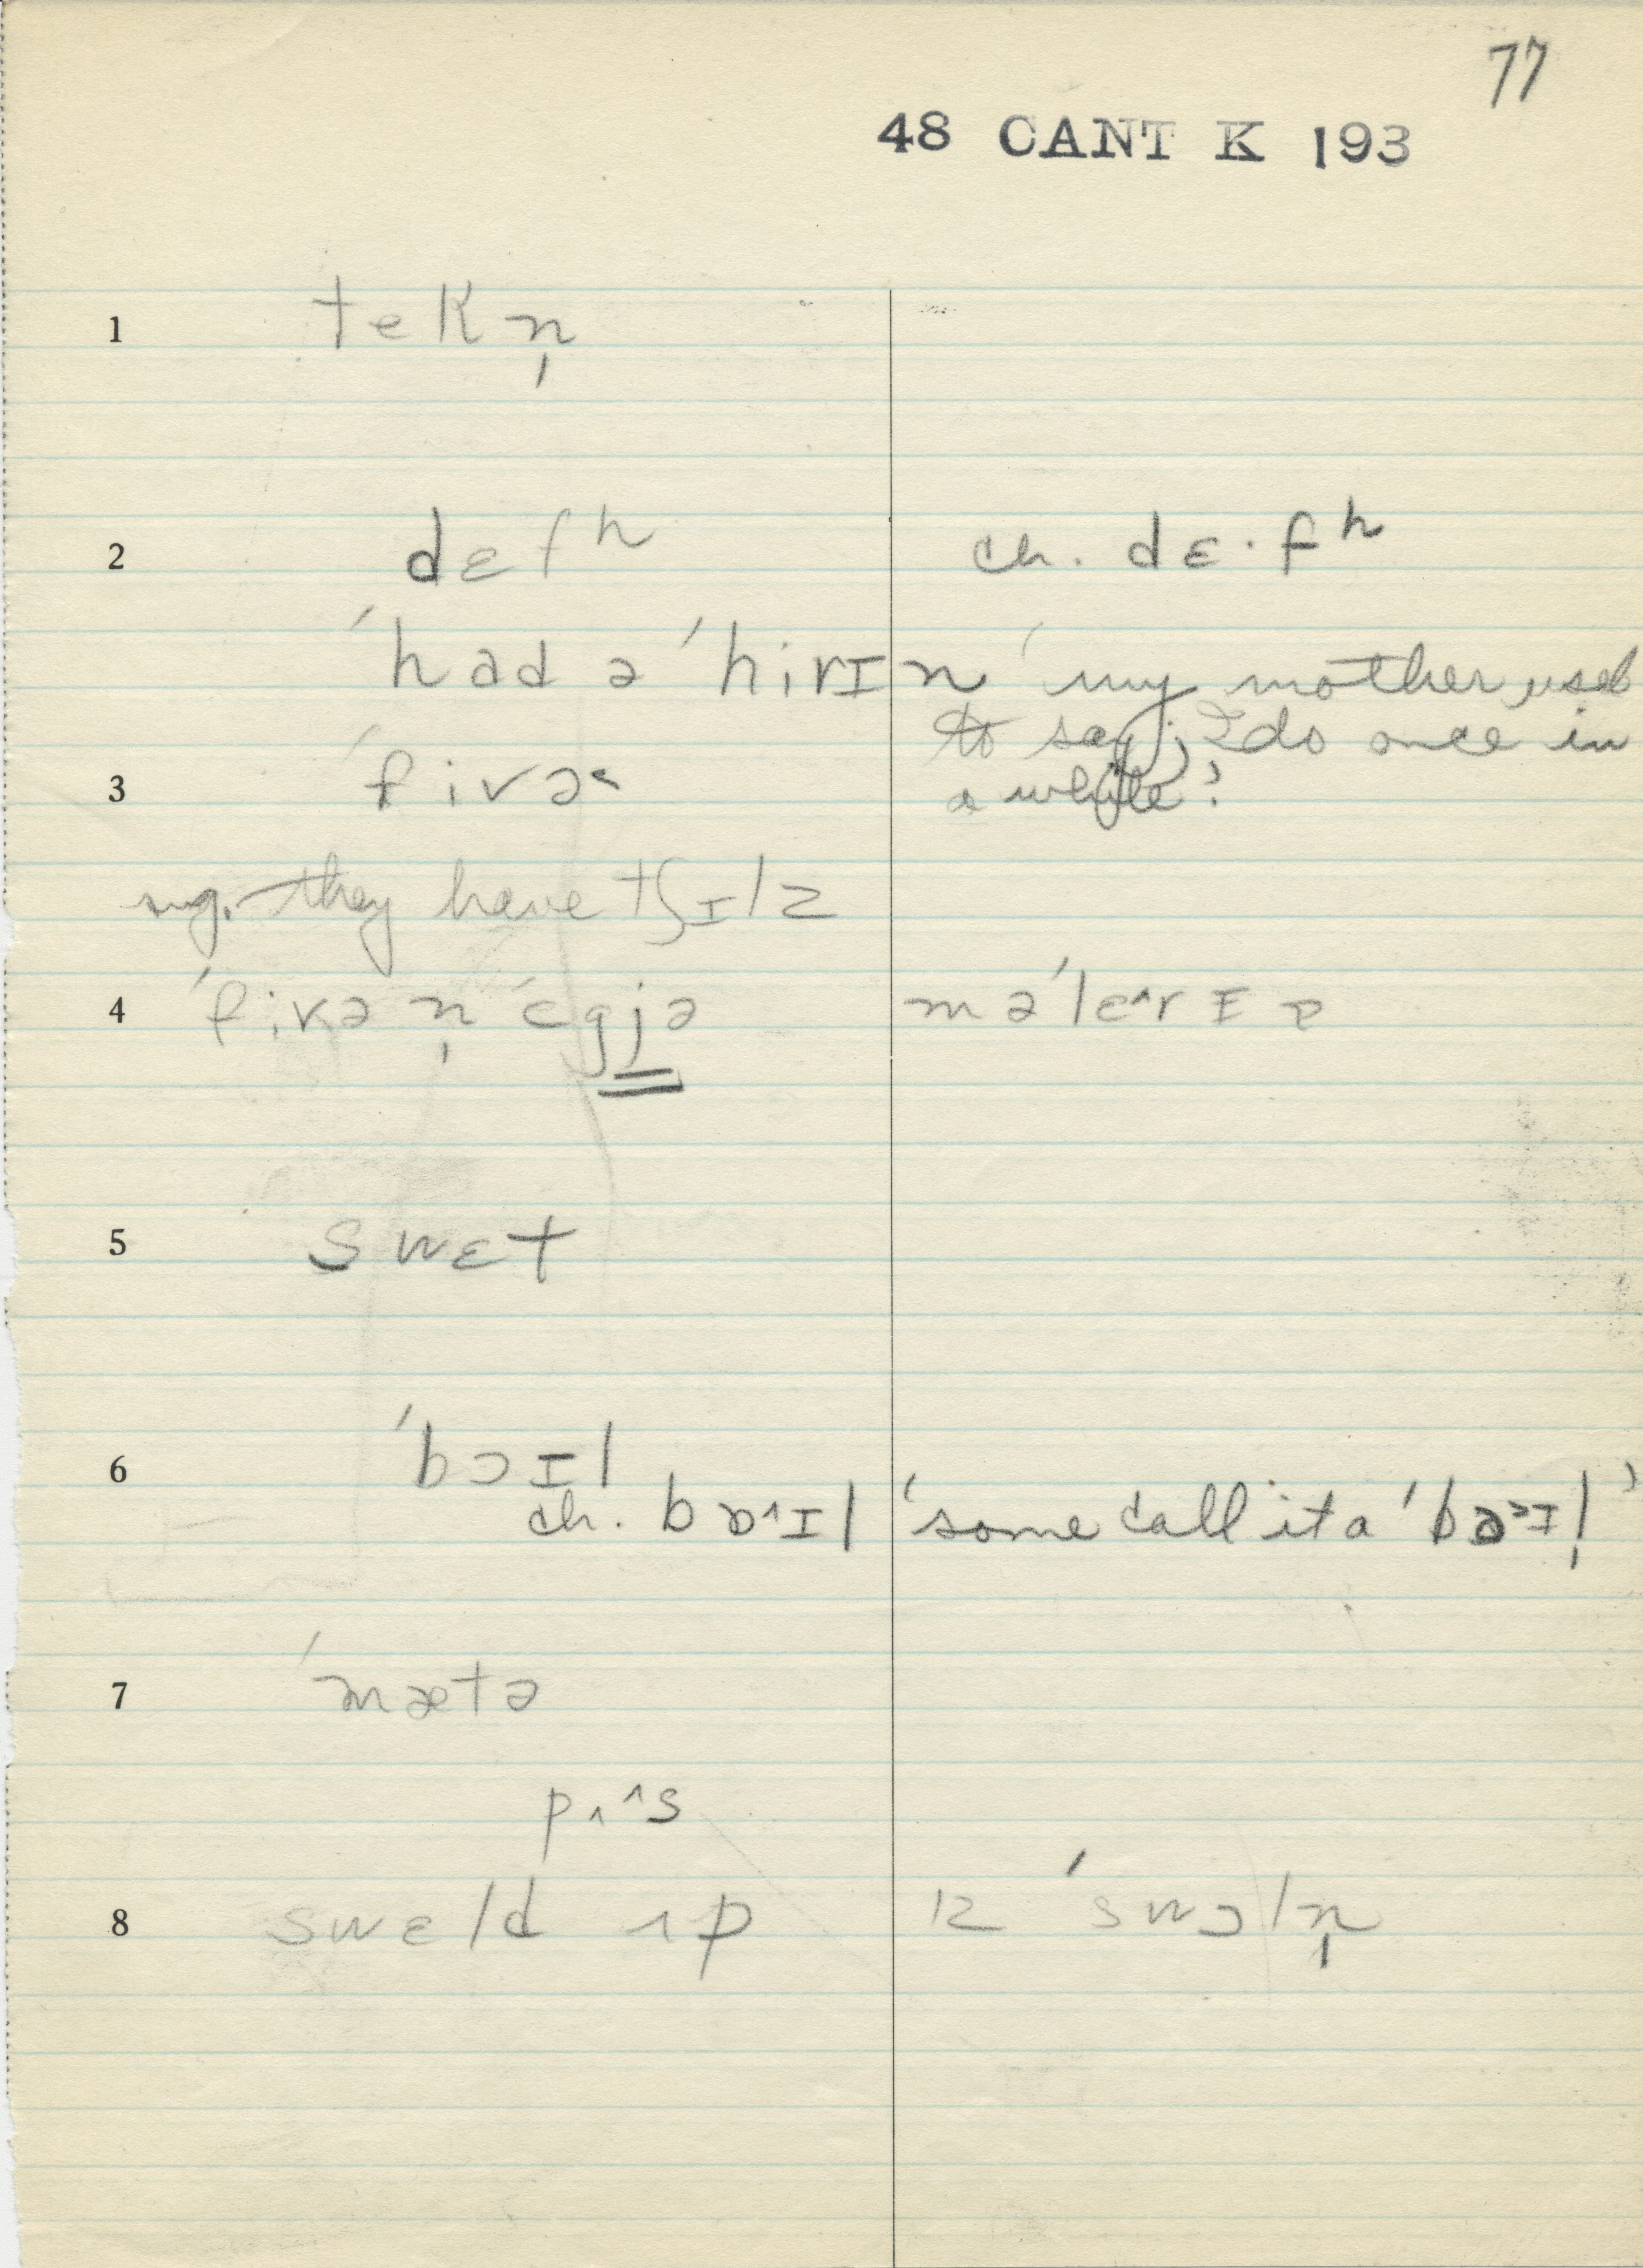 77
48 CANT K 193
1 tekn̩
2 dɛfʰ ch. dɛ·fʰ
ˈhad ə ˈhirɪn ‘my mother used
to say; I do once in
a while’
3 ˈfivə˂
sug. they have tʃɪlz
4 ˈfivə n̩ ˈɛgjə məˈlɛ^rɪə
5 swɛt
6 ˈbɔɪl
ch. bɒ^ɪl ‘some call it a ˈbə˃ɪl̩’
7 ˈmætə
pʌ^s
8 swɛld ʌp ɪz ˈswɔln̩